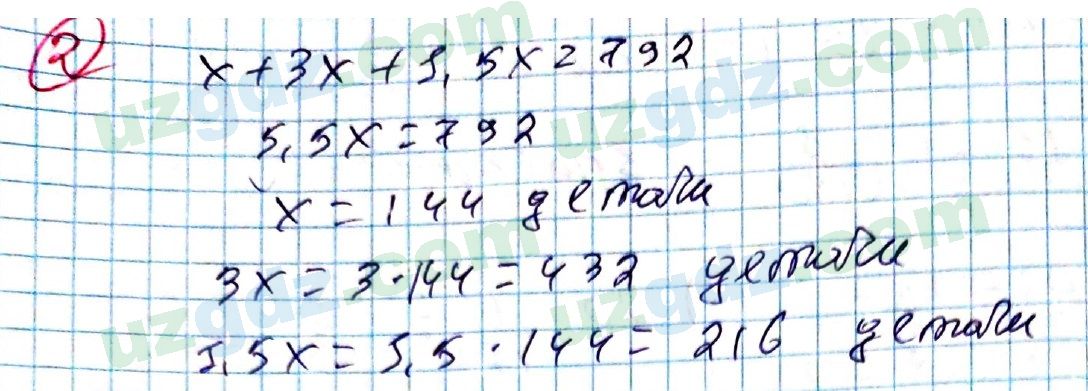 2
x + 3x + 1,5x = 792
5,5x = 792
x = 144 детали
3x = 3 · 144 = 432 детали
1,5x = 1,5 · 144 = 216 детали
uzgdz.com uzgdz.com
uzgdz.com uzgdz.com